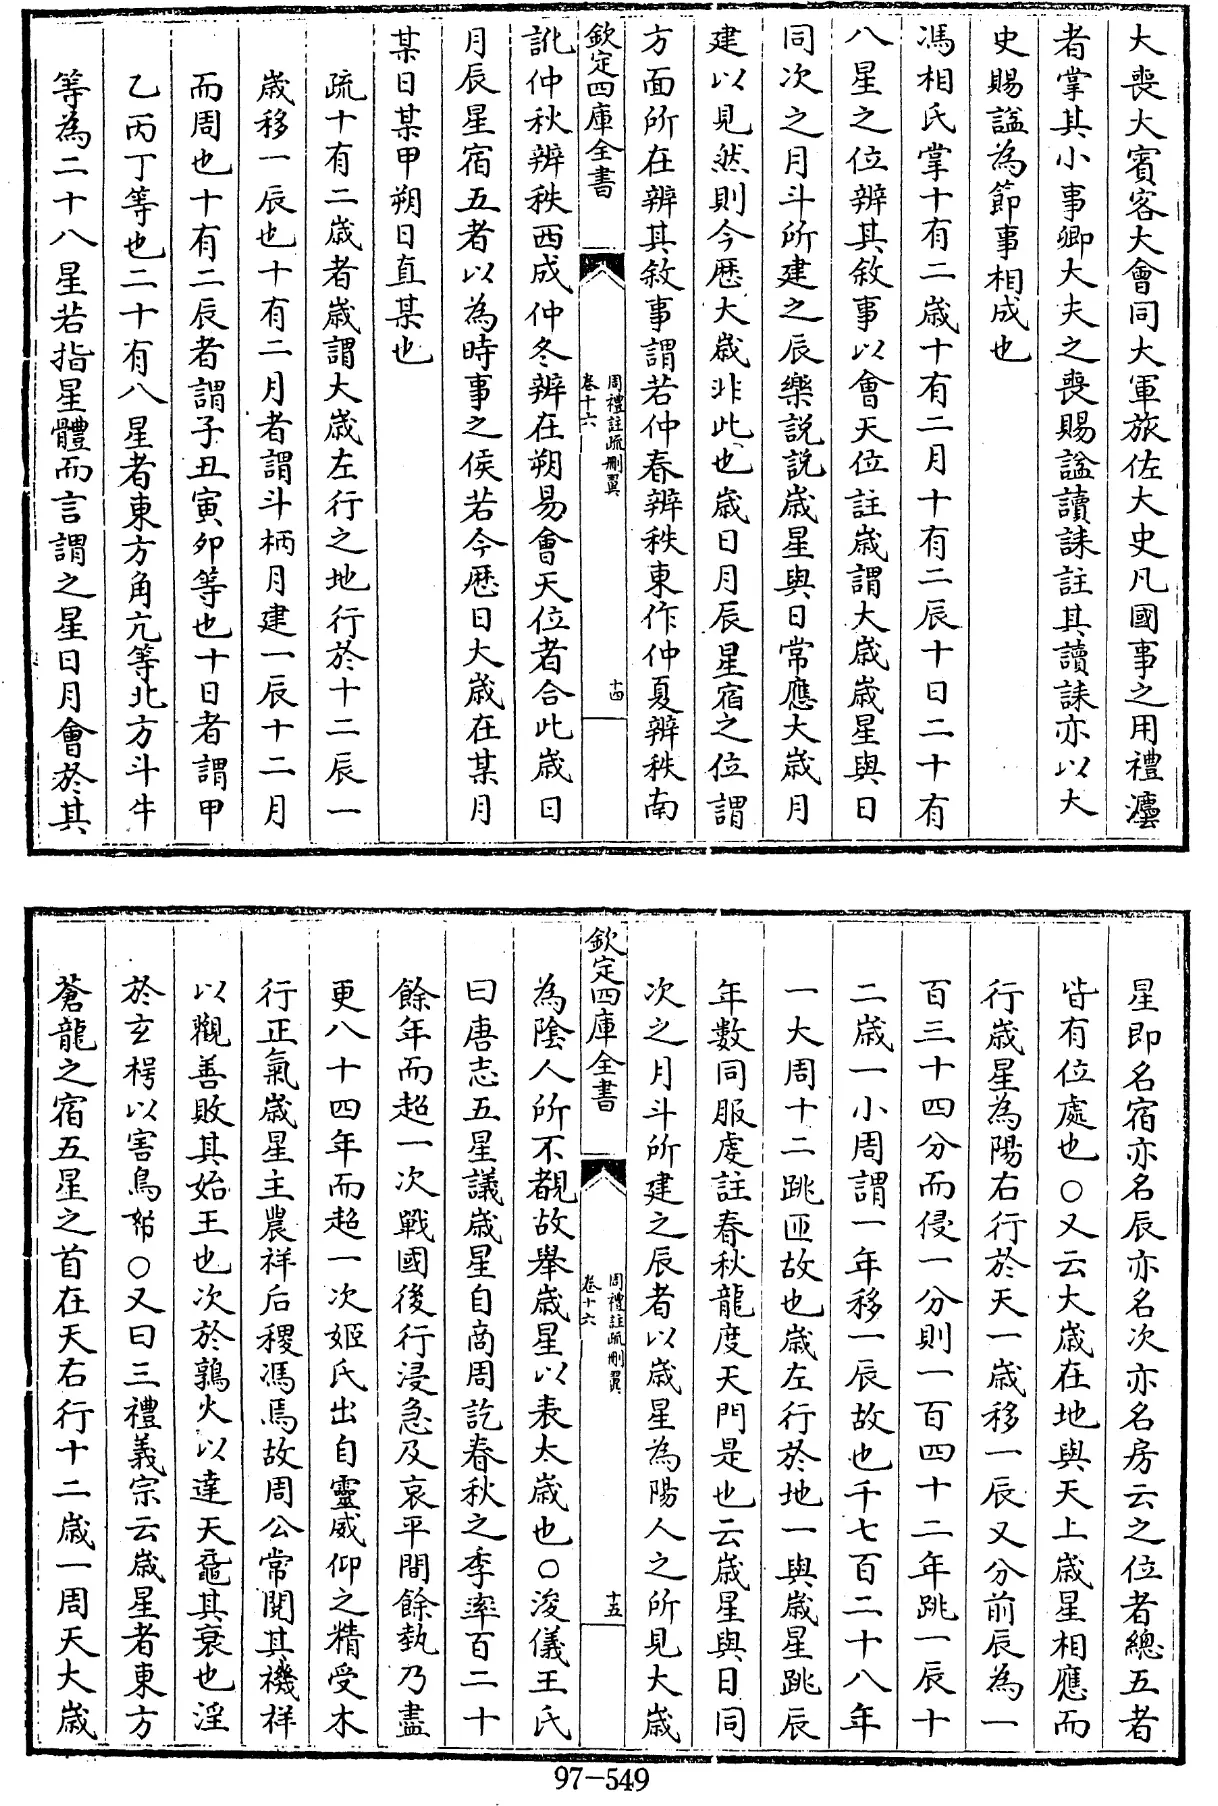 大喪大賓客大會同大軍旅佐大史凡國事之用禮灋
者掌其小事卿大夫之喪賜諡讀誄註其讀誄亦以大
史賜諡為節事相成也
馮相氏掌十有二歳十有二月十有二辰十日二十有
八星之位辨其敘事以㑹天位註歳謂大歳歳星與日
同次之月斗所建之辰樂説説歳星與日常應大歳月
建以見然則今厯大歳非此也歳日月辰星宿之位謂
方面所在辨其敘事謂若仲春辨秩東作仲夏辨秩南
欽定四庫全書
周禮註疏刪翼
卷十六
十四
訛仲秋辨秩西成仲冬辨在朔易會天位者合此歳日
月辰星宿五者以為時事之侯若今厯日大歳在某月
某日某甲朔日直某也
疏十有二歳者歳謂大歳左行之地行於十二辰一
歳移一辰也十有二月者謂斗柄月建一辰十二月
而周也十有二辰者謂子丑寅卯等也十日者謂甲
乙丙丁等也二十有八星者東方角亢等北方斗牛
等為二十八星若指星體而言謂之星日月會於其
星即名宿亦名辰亦名次亦名房云之位者總五者
皆有位處也○又云大歳在地與天上歳星相應而
行歳星為陽右行於天一歳移一辰又分前辰為一
百三十四分而侵一分則一百四十二年跳一辰十
二歳一小周謂一年移一辰故也千七百二十八年
一大周十二跳匝故也歳左行於地一與歳星跳辰
年數同服虔註春秋龍度天門是也云歳星與日同
次之月斗所建之辰者以歳星為陽人之所見大歳
欽定四庫全書
周禮註疏刪翼
卷十六
十五
為陰人所不覩故舉歳星以表太歳也○浚儀王氏
曰唐志五星議歳星自商周訖春秋之季率百二十
餘年而超一次戰國後行浸急及哀平間餘執乃盡
更八十四年而超一次姬氏出自靈威仰之精受木
行正氣歳星主農祥后稷馮焉故周公常閱其禨祥
以觀善敗其始王也次於鶉火以達天黿其衰也淫
於玄枵以害鳥帑○又曰三禮義宗云歳星者東方
蒼龍之宿五星之首在天右行十二歳一周天大歳
97-549